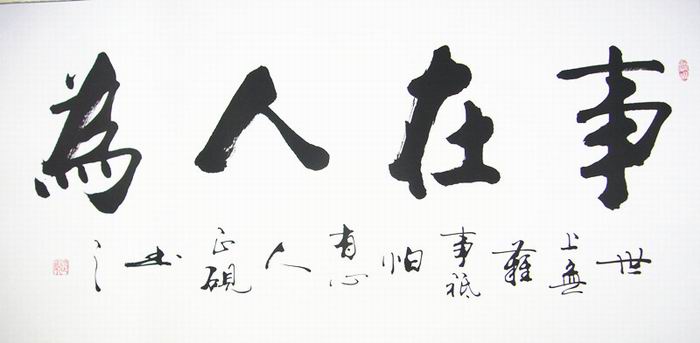 事在人為
世上無難事祗怕有心人 正硯书之